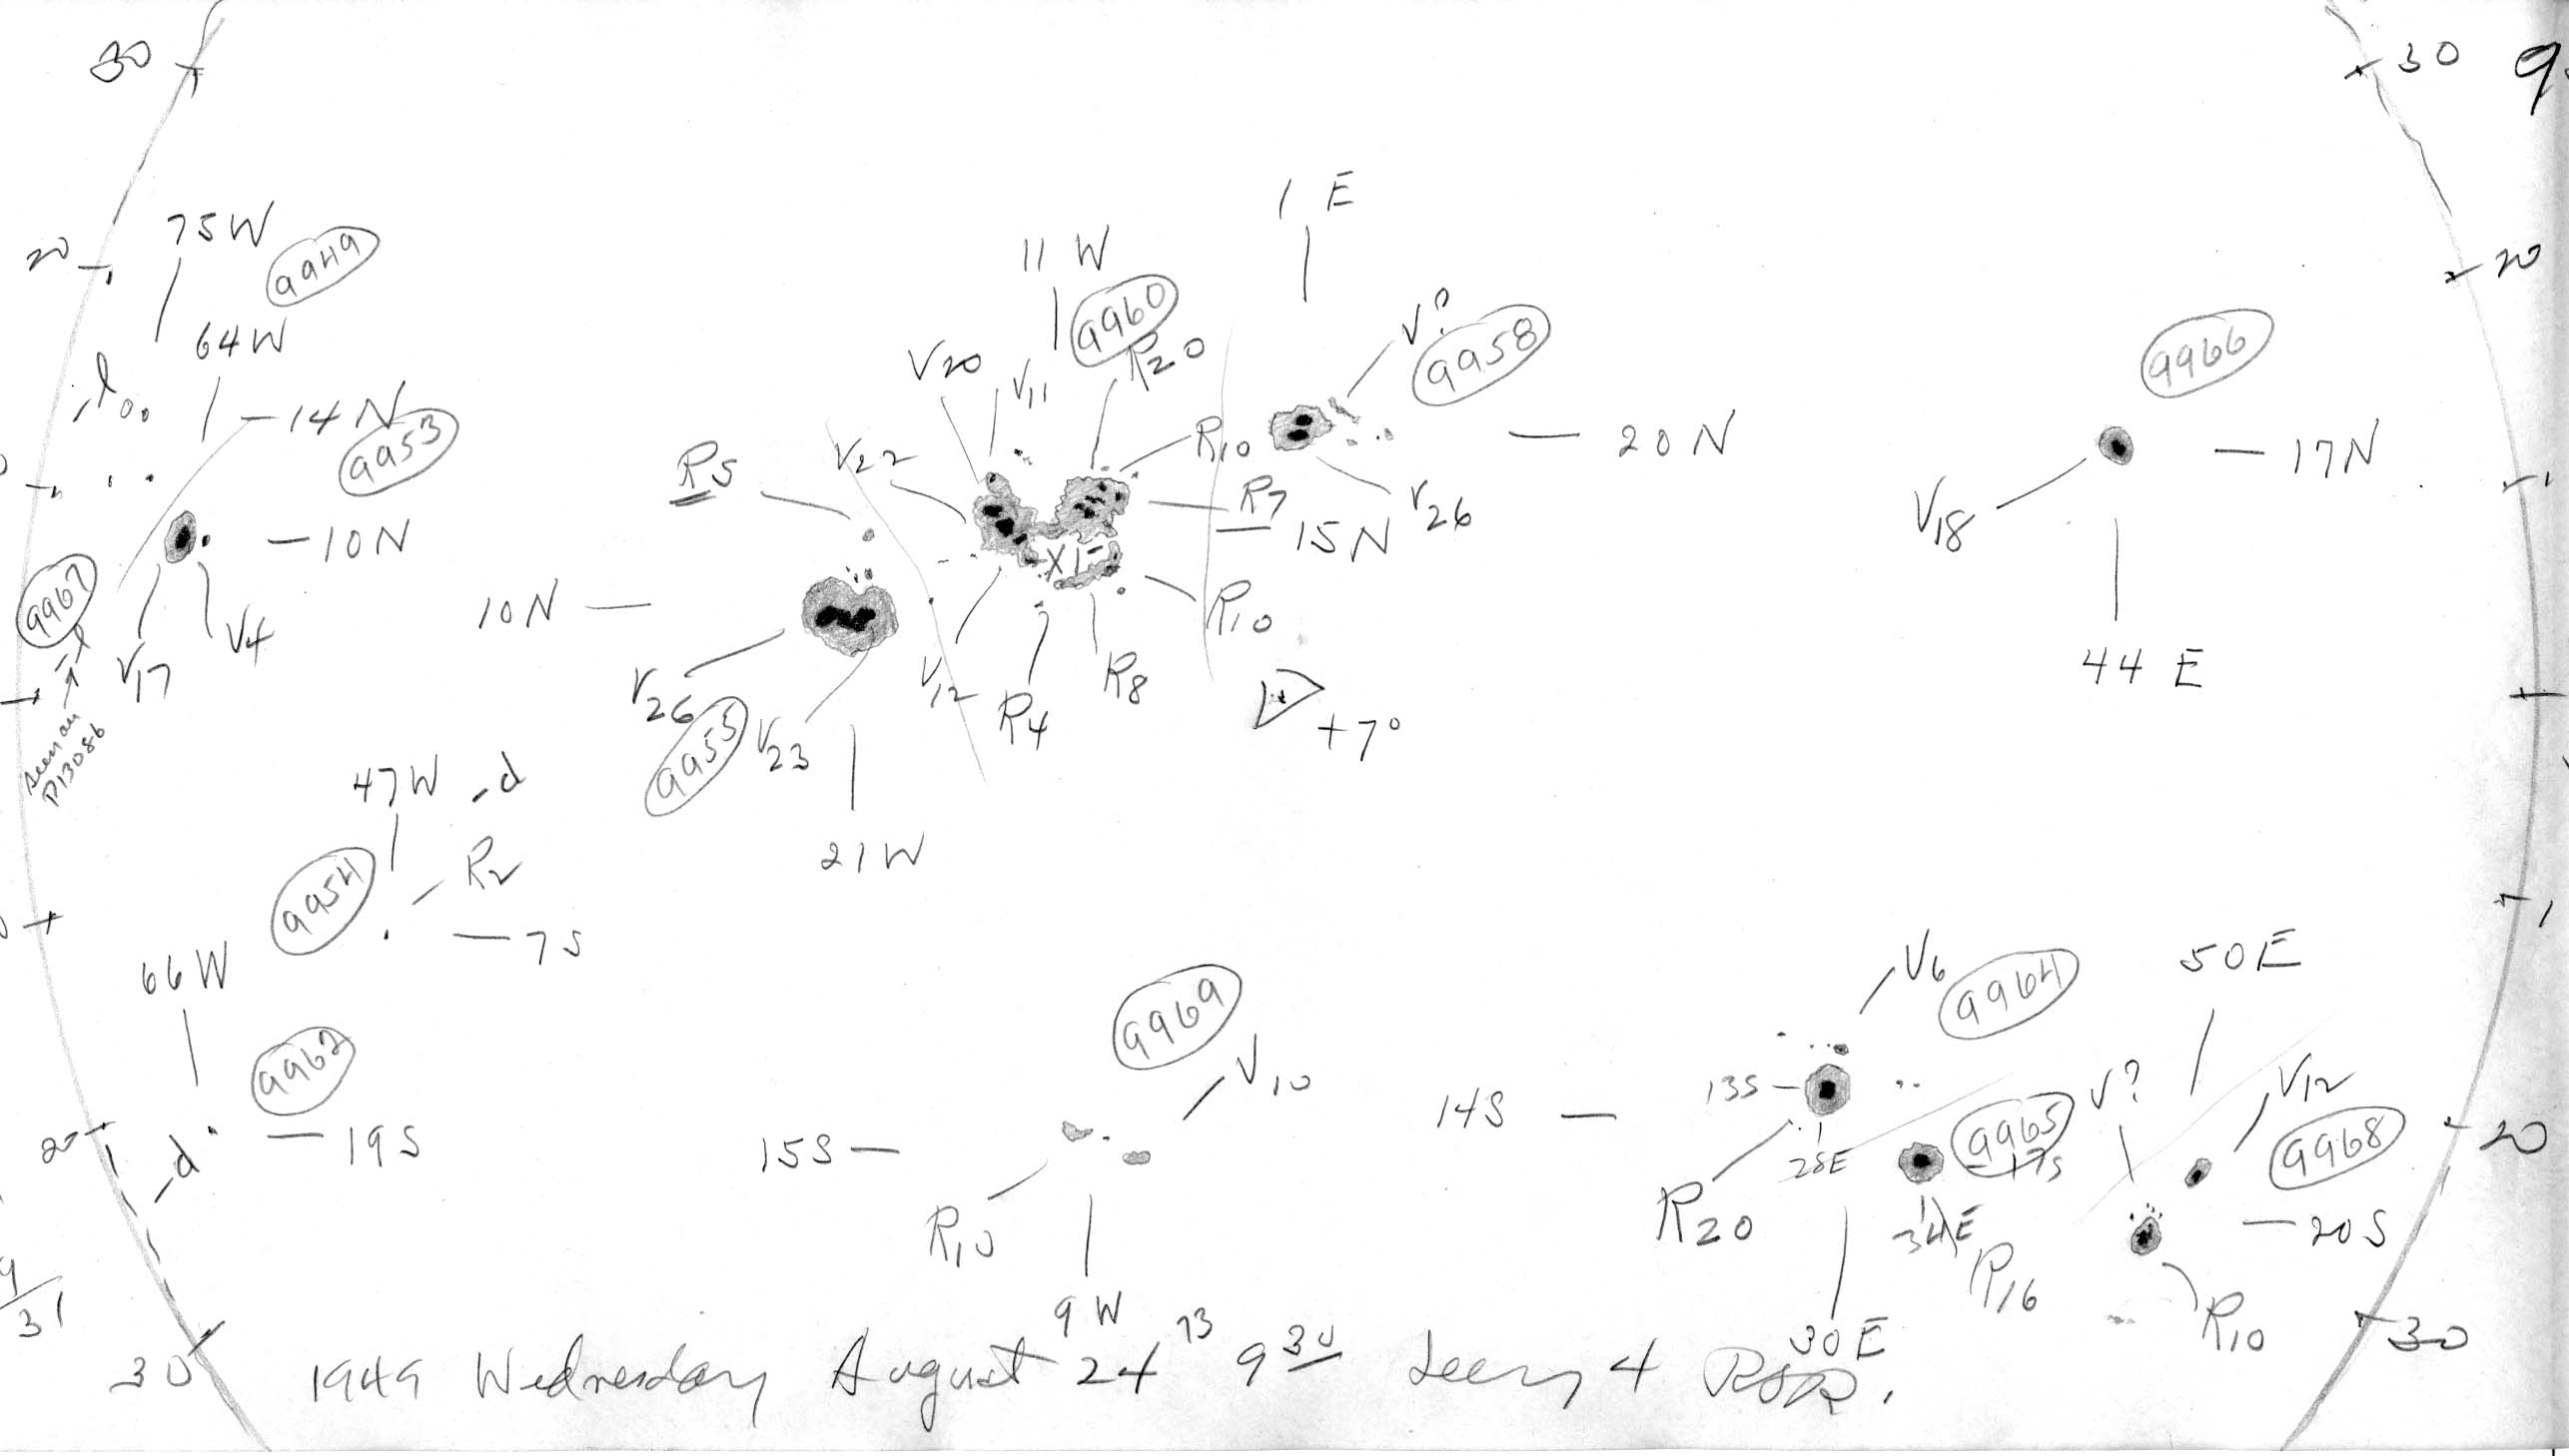 30
30
9
75W
9949
20
20
1 E
11 W
9960
64W
l
V20
V11
R20
V?
9958
9966
14N
9953
R5
V22
R10
20N
17N
R7
V26
V18
10N
15N
10N
9967
V17
V4
V26
9955
V23
V12
R4
R8
R10
+7°
44 E
seen on
P13086
47W -d
21W
R2
9954
7S
66W
9962
-d
19S
20
9969
V10
15S
R10
9W
V6
9964
50E
14S
13S
28E
9965
17S
V?
V12
9968
20
R20
34E
R16
20S
R10
30E
30
31
30
1949 Wednesday August 24 73 9 30 seeing 4 RSR.